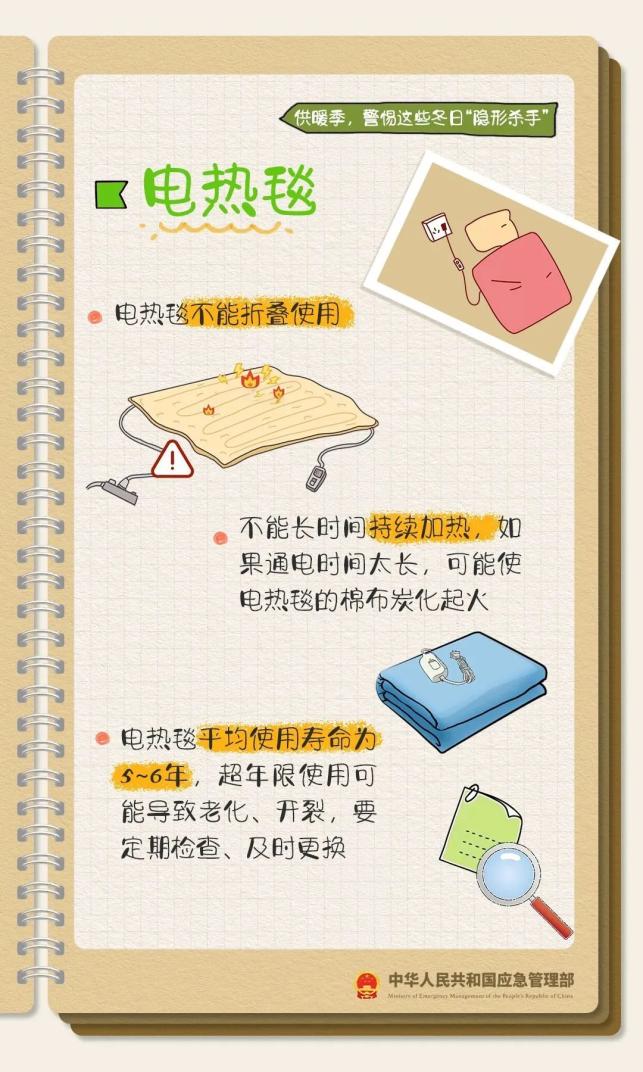 供暖季，警惕这些冬日“隐形杀手”
电热毯
电热毯不能折叠使用
不能长时间持续加热，如
果通电时间太长，可能使
电热毯的棉布炭化起火
电热毯平均使用寿命为
5~6年，超年限使用可
能导致老化、开裂，要
定期检查、及时更换
中华人民共和国应急管理部
Ministry of Emergency Management of the People's Republic of China